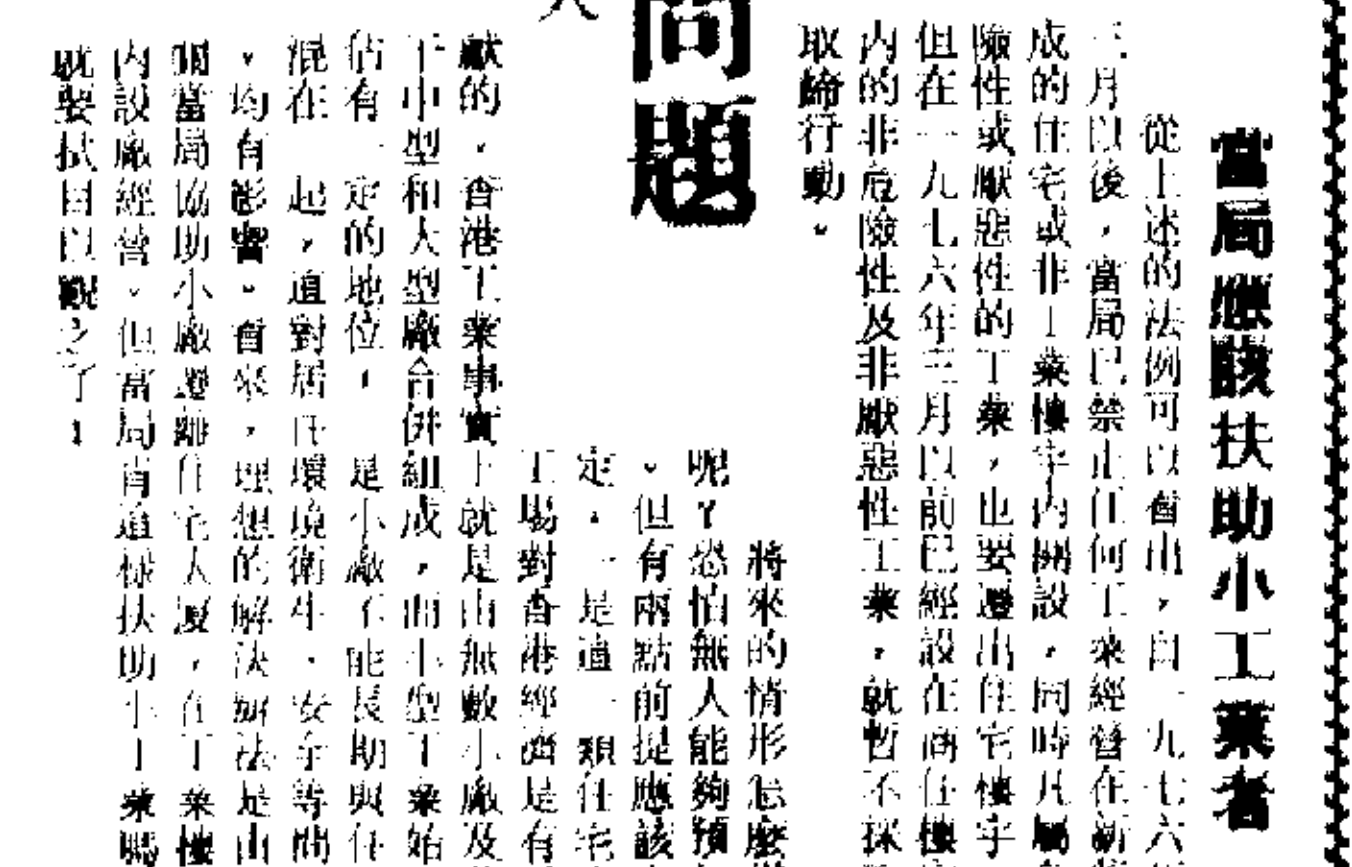 問題
當局應該扶助小工業者
從上述的法例可以看出,自一九七六
三月以後,當局已禁止任何工業經營在新
成的住宅或非工業樓宇內開設,同時凡屬
險性或厭惡性的工業,也要遷出住宅樓宇
但在一九七六年三月以前已經設在商住樓
內的非危險性及非厭惡性工業,就暫不採
取締行動。
將來的情形怎麼
呢?恐怕無人能夠預
。但有兩點前提應該
定,一是這一類住宅
工場對香港經濟是有
獻的,香港工業事實上就是由無數小廠及
中型和大型廠合併組成,而小型工業始
佔有一定的地位,是小廠不能長期與住
混在一起,這對居民環境衛生、安全等問
,均有影響。看來,理想的解決辦法是由
當局協助小廠遷離住宅大廈,在工業樓
內設廠經營。但當局肯這樣扶助小工業嗎
就要拭目以觀之了!